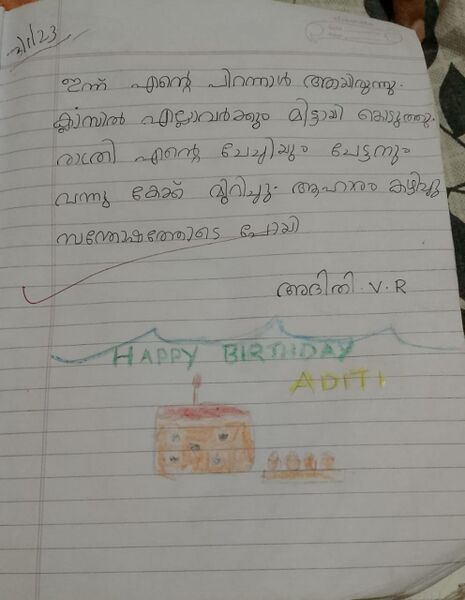 ഇന്ന് എന്റെ പിറന്നാൾ ആയിരുന്നു.
ക്ലാസിൽ എല്ലാവർക്കും മിട്ടായി കൊടുത്തു.
രാത്രി എന്റെ ചേച്ചിയും ചേട്ടനും
വന്നു കേക്ക് മുറിച്ചു. ആഹാരം കഴിച്ചു
സന്തോഷത്തോടെ പോയി
അദിതി. V. R
HAPPY BIRTHDAY
ADITI